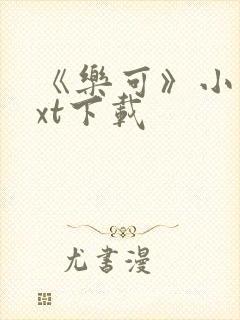 《樂可》小
xt下載
尤書漫